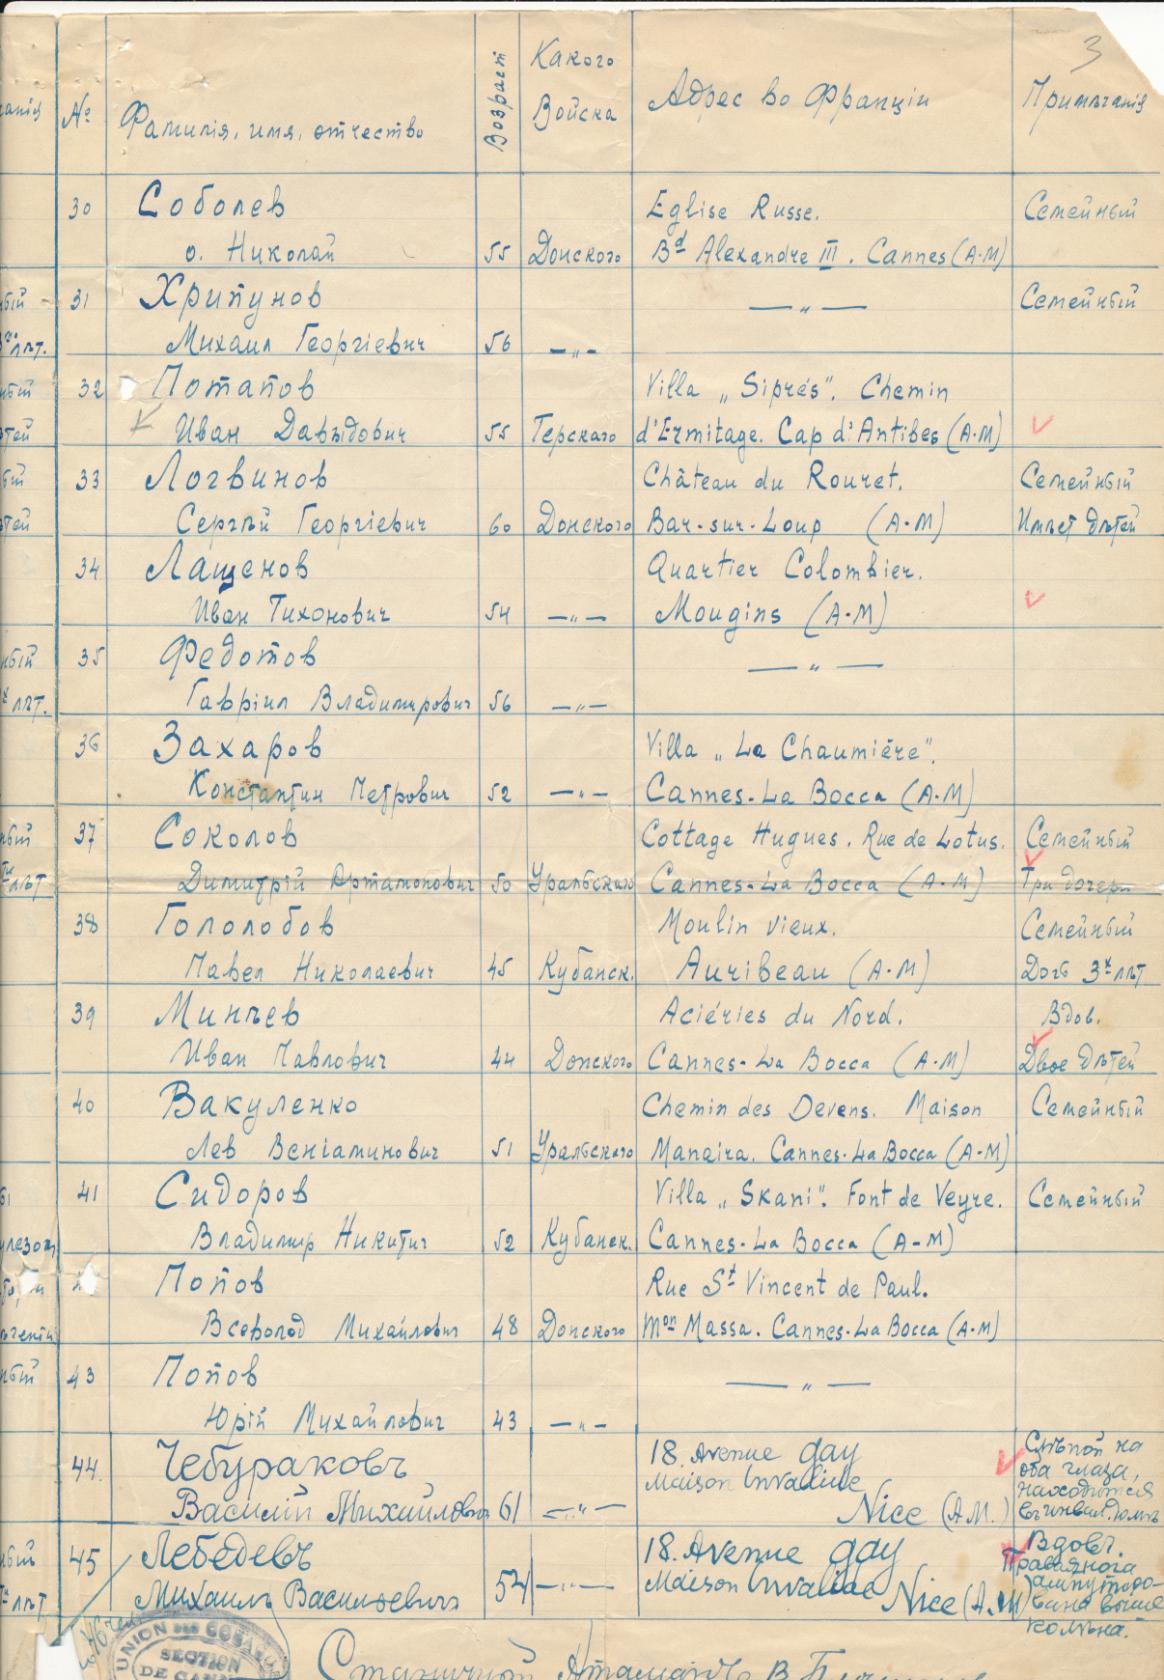 3
№ Фамилія, имя, отчество Возраст Какого Войска Адрес во Франціи Примѣчанія
30 Соболев Eglise Russe. Семейный
о. Николай 55 Донского Bd Alexandre III. Cannes (A-M)
31 Хрипунов —„— Семейный
Михаил Георгіевич 56 —„—
32 Потапов Villa „Siprés". Chemin
Иван Давыдович 55 Терского d'Ermitage. Cap d'Antibes (A-M)
33 Логвинов Château du Rouret. Семейный
Сергѣй Георгіевич 60 Донского Bar-sur-Loup (A-M) Имѣет дѣтей
34 Лащенов Quartier Colombier.
Иван Тихонович 54 —„— Mougins (A-M)
35 Федотов —„—
Гавріил Владимирович 56 —„—
36 Захаров Villa „La Chaumière".
Константин Петрович 52 —„— Cannes-La Bocca (A-M)
37 Соколов Cottage Hugues. Rue de Lotus. Семейный
Димитрій Артамонович 50 Уральского Cannes-La Bocca (A-M) Три дочери
38 Гололобов Moulin vieux. Семейный
Павел Николаевич 45 Кубанск. Auribeau (A-M) Дочь 3х лѣт
39 Минѣев Aciéries du Nord. Вдов.
Иван Павлович 44 Донского Cannes-La Bocca (A-M) Двое дѣтей
40 Вакуленко Chemin des Devens. Maison Семейный
Лев Веніаминович 51 Уральского Manaira. Cannes-La Bocca (A-M)
41 Сидоров Villa „Skani". Font de Veyre. Семейный
Владимир Никитич 52 Кубанск. Cannes-La Bocca (A-M)
Попов Rue St Vincent de Paul.
Всеволод Михайлович 48 Донского Mon Massa. Cannes-La Bocca (A-M)
43 Попов —„—
Юрій Михайлович 43 —„—
44. Чебураковъ 18. Avenue gay Слѣпой на
Maison Invalide оба глаза,
находится
Василій Михайлович 61 —„— Nice (A.M.) въ инвал. домѣ
45 Лебедевъ 18. Avenue gay Вдовъ.
Правая нога
Maison Invalide ампутиро-
Михаилъ Васильевичъ 54 —„— Nice (A.M) вана выше
колѣна.
UNION DES COSAQUES
SECTION
DE CANNES
Станичный Атаманъ В.